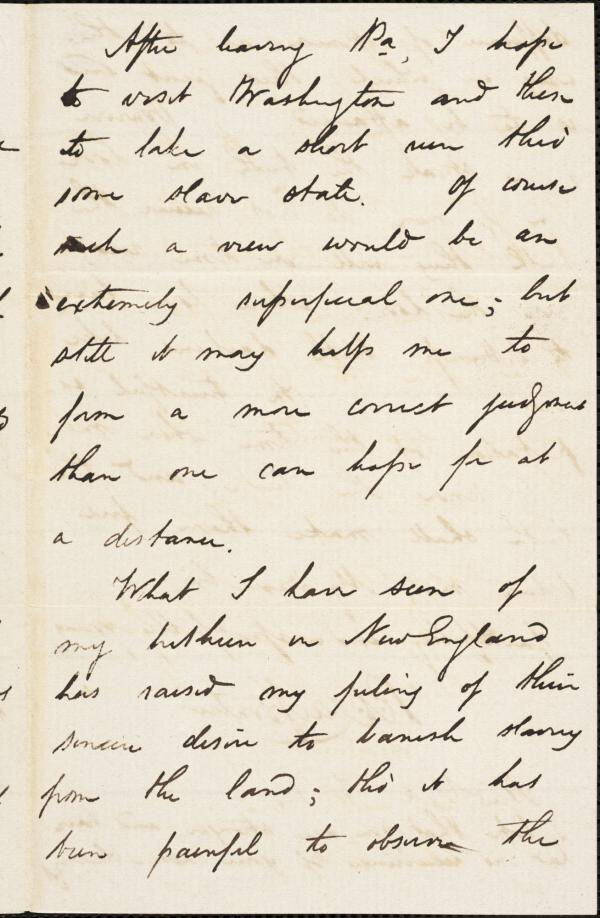 After leaving Pa, I hope
to visit Washington and then
to take a short run thro'
some slave state. Of course
such a view would be an
extremely superficial one; but
still it may help me to
form a more correct judgment
than one can hope for at
a distance.
What I have seen of
my brethren in New England
has raised my feeling of their
sincere desire to banish slavery
from the land; tho' it has
been painful to observe the